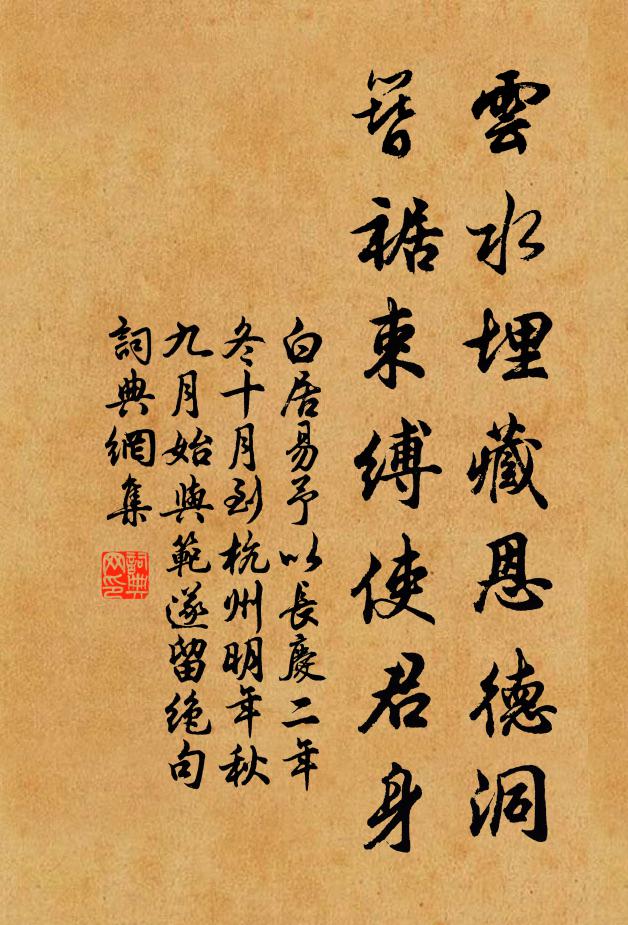 雲水埋藏恩德洞
簪裾束縛使君身
白居易予以長慶二年
冬十月到杭州明年秋
九月始與範遂留絶句
詞典網集
詞典
网印